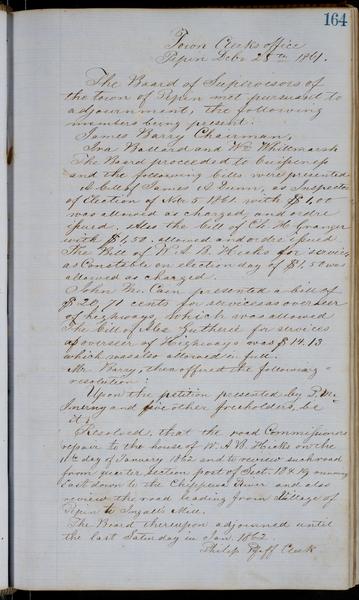 164
Town Clerks office
Pepin Decbr 28th 1861.
The Board of Supervisors of
the town of Pepin met pursuant to
adjournment, the following
members being present:
James Barry Chairman,
Ira Ballard and Wm Whitmarsh
The Board proceeded to business
and the following bills were presented
A bill of James A Dunn, as Inspector
of Election of Nov 5 1861 with $1,00
was allowed as charged, and order
issued. Also the bill of Ch. H. Granger
with $1,50. allowed and order issued
The Bill of W. A. B. Hicks for services
as Constable on election day of $1,50 was
allowed as charged.
John Mc. Cain presented a bill of
$20,71 cents for services as overseer
of highways, which was allowed
The bill of Abs. for services
as overseer of Highways was $14.13
which was also allowed in full.
Mr. Barry, then offered the following
resolution:
Upon the petition presented by
and five other freeholders, be
it
Resolved, that the road Commissioners
repair to the house of W. A B. Hicks on the
11th day of January 1862 and to review such road
from quarter Section post of Sect. 18 & 19 running
East down to the Chippewa River and also
review the road leading from Village of
Pepin to Mill.
The Board thereupon adjourned until
the last Saturday in Jan. 1862.
Philip Pfaff Clerk